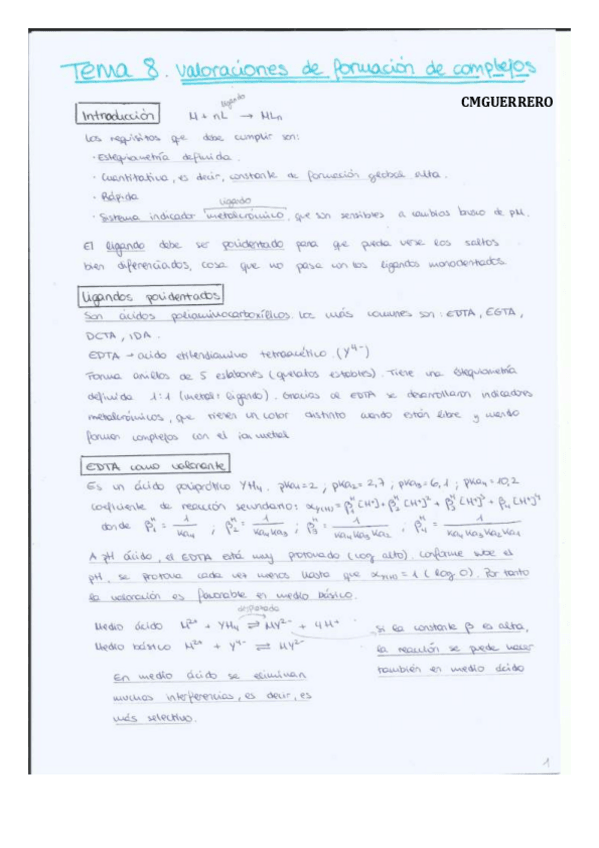 Tema 8. Valoraciones de formación de complejos
CMGUERRERO
Introducción
ligando
M + nL → MLn
Los requisitos que debe cumplir son:
· Estequiometría definida.
· Cuantitativa, es decir, constante de formación global alta.
· Rápida
ligando
· Sistema indicador metalcrómico, que son sensibles a cambios bruscos de pM.
El ligando debe ser polidentado para que pueda verse los saltos
bien diferenciados, cosa que no pasa con los ligandos monodentados.
Ligandos polidentados
Son ácidos poliaminocarboxílicos. Los más comunes son: EDTA, EGTA,
DCTA, IDA.
EDTA → ácido etilendiamino tetraacético. (Y⁴⁻)
Forma anillos de 5 eslabones (quelatos estables). Tiene una estequiometría
definida 1:1 (metal: ligando). Gracias al EDTA se desarrollaron indicadores
metalcrómicos, que tienen un color distinto cuando están libre y cuando
forman complejos con el ion metal
EDTA como valorante
Es un ácido poliprótico YH₄. pKa₁=2 ; pKa₂= 2,7 ; pKa₃=6,1 ; pKa₄= 10,2
coeficiente de reacción secundario: αY(H) = β₁ᴴ[H⁺] + β₂ᴴ[H⁺]² + β₃ᴴ[H⁺]³ + β₄[H⁺]⁴
donde β₁ᴴ = 1/Ka₄ ; β₂ᴴ = 1/Ka₄Ka₃ ; β₃ᴴ = 1/Ka₄Ka₃Ka₂ ; β₄ᴴ = 1/Ka₄Ka₃Ka₂Ka₁
A pH ácido, el EDTA está muy protonado (log alto). Conforme sube el
pH, se protona cada vez menos hasta que αY(H) = 1 (log. 0). Por tanto
la valoración es favorable en medio básico.
Medio ácido M²⁺ + YH₄ ⇌ MY²⁻ + 4H⁺
Medio básico M²⁺ + Y⁴⁻ ⇌ MY²⁻
Si la constante β es alta,
la reacción se puede hacer
también en medio ácido
En medio ácido se eliminan
muchas interferencias, es decir, es
más selectivo.
1